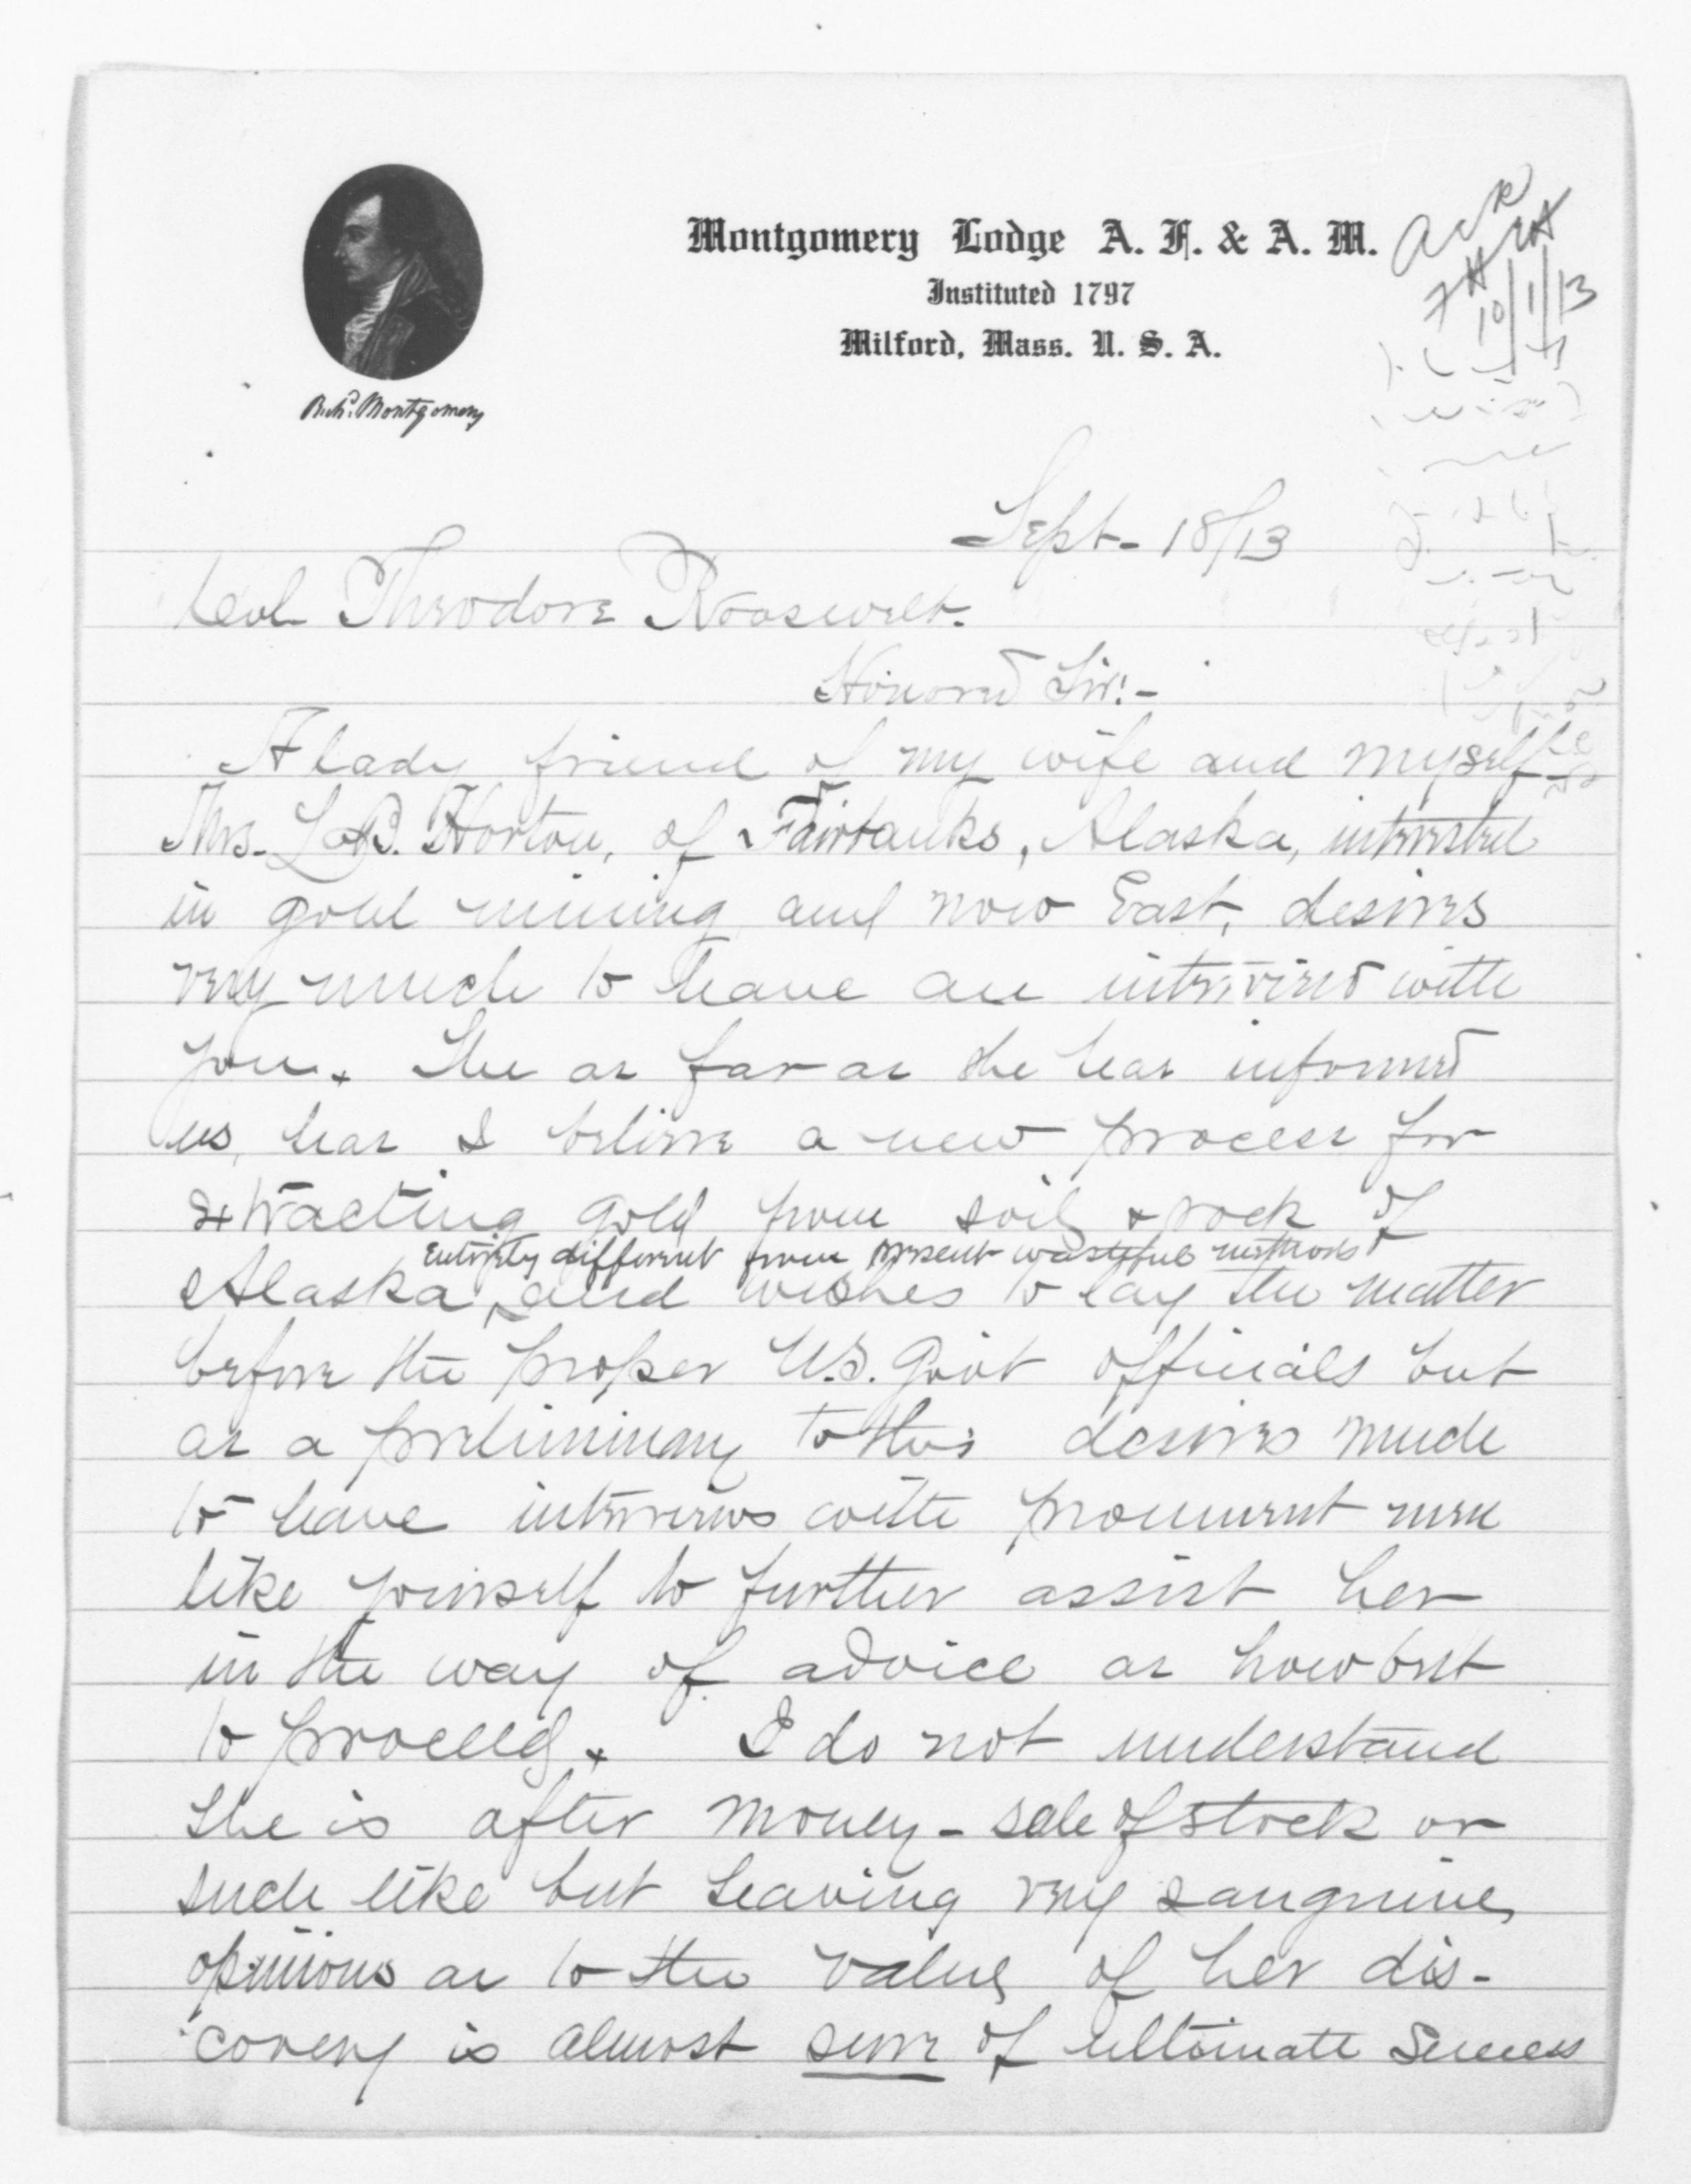 Montgomery Lodge A. F. & A. M.
Instituted 1797
Milford, Mass. U. S. A.
Richd. Montgomery
Ack
10/1/13
Sept- 18/13
Col Theodore Roosevelt.
Honored Sir:-
A lady friend of my wife and myself-
Mrs. L. B. Horton, of Fairbanks, Alaska, interested
in gold mining and now East, desires
very much to have an interview with
you. She as far as she has informed
us, has I believe a new process for
extracting gold from soil & rock of
entirely different from present wasteful methods
Alaska, and wishes to lay the matter
before the proper U.S. Govt officials but
as a preliminary to this desires much
to have interviews with prominent men
like yourself to further assist her
in the way of advice as how best
to proceed. I do not understand
she is after money - sale of stock or
such like but having very sanguine
opinions as to the value of her dis-
covery is almost sure of ultimate success